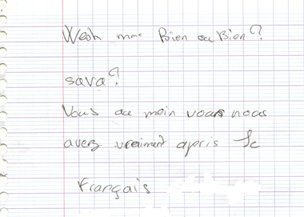 Wesh mme Bien ou Bien?
sava?
Vous au moin vous nous
avez vraiment apris le
français